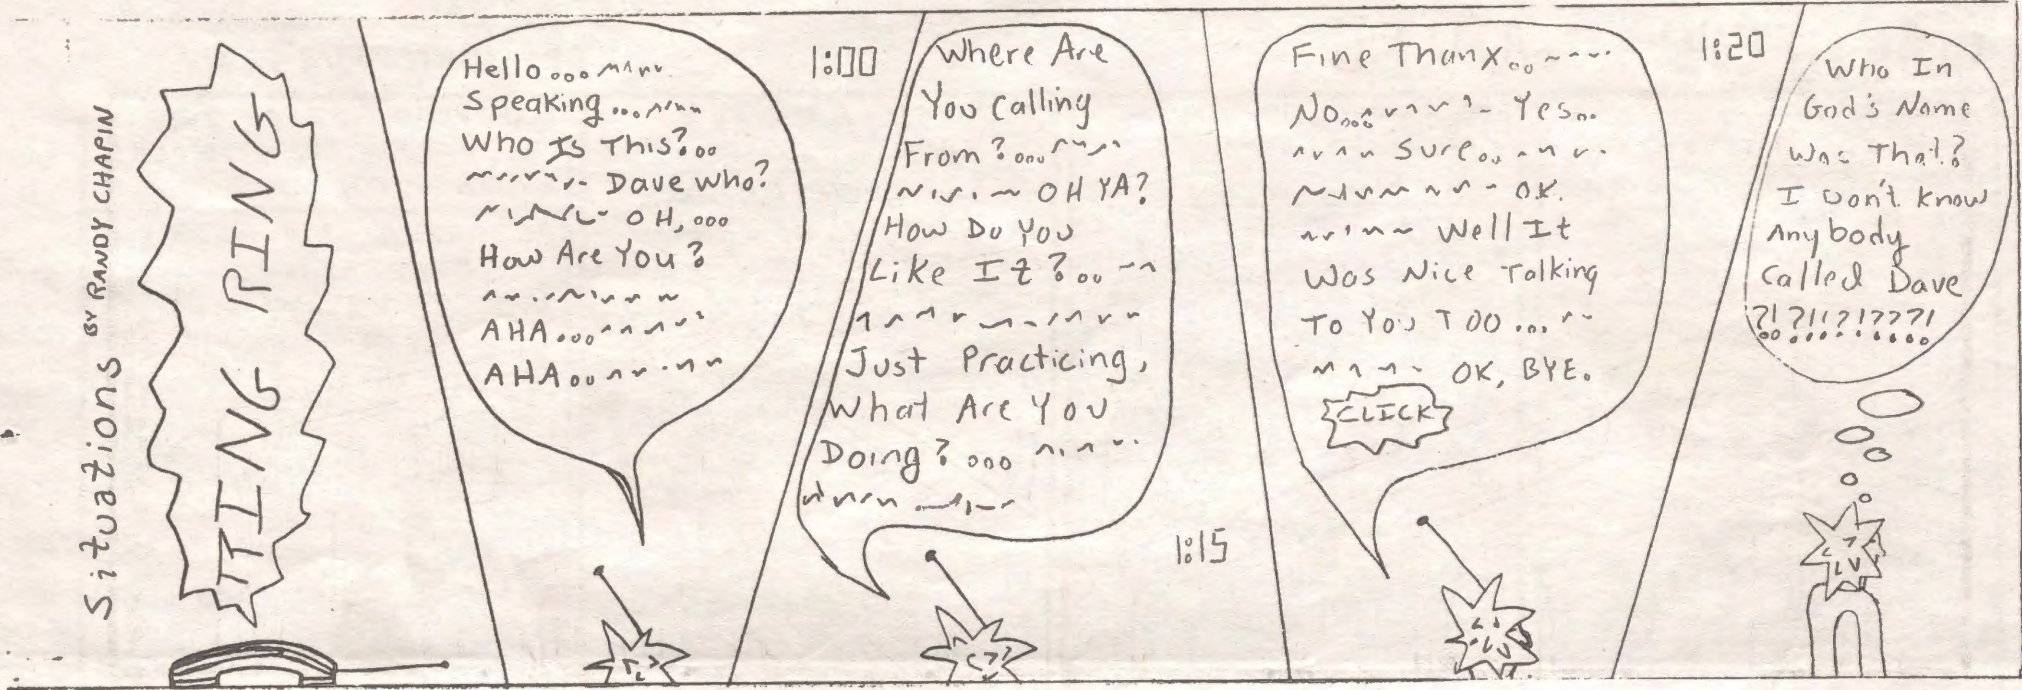 Situations BY RANDY CHAPIN
TTING RING
Hello...
Speaking...
Who Is This?..
Dave Who?
OH,...
How Are You?
AHA...
AHA..
1:00
Where Are
You Calling
From?...
OH YA?
How Do You
Like It?..
Just Practicing,
What Are You
Doing?...
1:15
Fine Thanx..
No.... Yes..
Sure..
OK.
Well It
Was Nice Talking
To You TOO...
OK, BYE.
CLICK
1:20
Who In
God's Name
Was That?
I Don't Know
Anybody
Called Dave
?!?!!?!???!